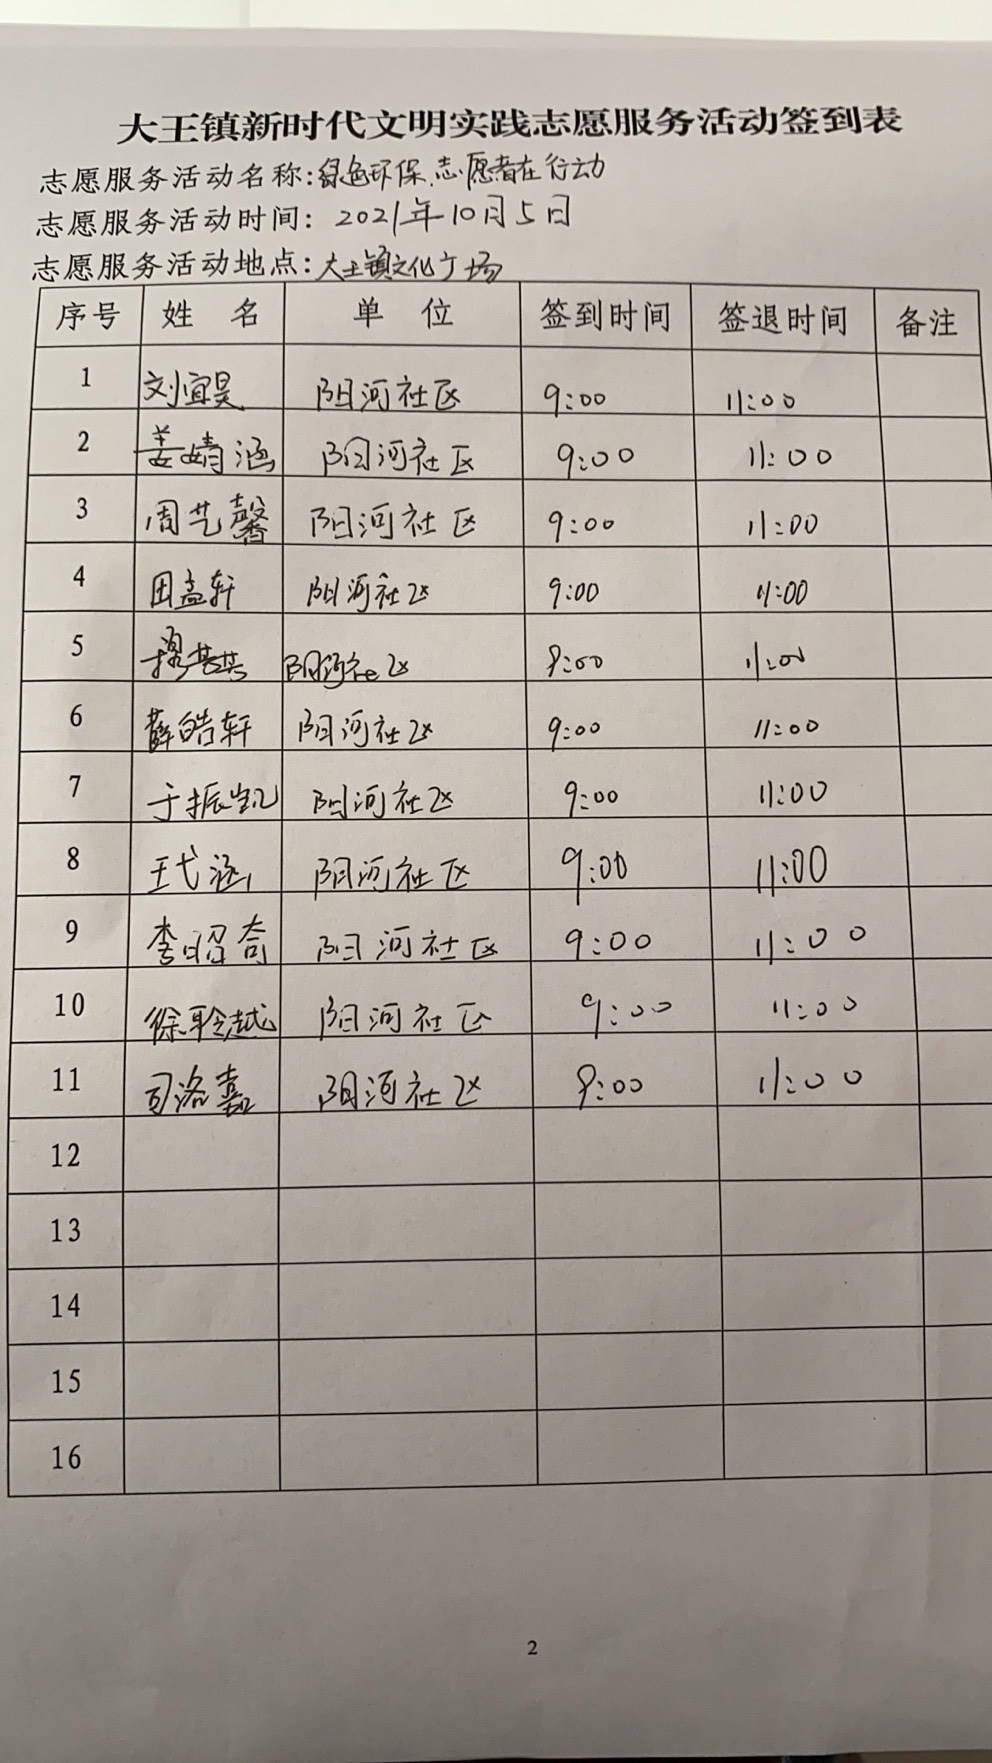 大王镇新时代文明实践志愿服务活动签到表
志愿服务活动名称:绿色环保.志愿者在行动
志愿服务活动时间: 2021年10月5日
志愿服务活动地点:大王镇文化广场
序号 姓 名 单 位 签到时间 签退时间 备注
1 刘宜昊 阳河社区 9:00 11:00
2 姜婧涵 阳河社区 9:00 11:00
3 周艺馨 阳河社区 9:00 11:00
4 田孟轩 阳河社区 9:00 11:00
5 阳河社区 9:00 11:00
6 薛皓轩 阳河社区 9:00 11:00
7 于振凯 阳河社区 9:00 11:00
8 王弋涵 阳河社区 9:00 11:00
9 李昭奇 阳河社区 9:00 11:00
10 徐聆越 阳河社区 9:00 11:00
11 司洛嘉 阳河社区 9:00 11:00
12
13
14
15
16
2